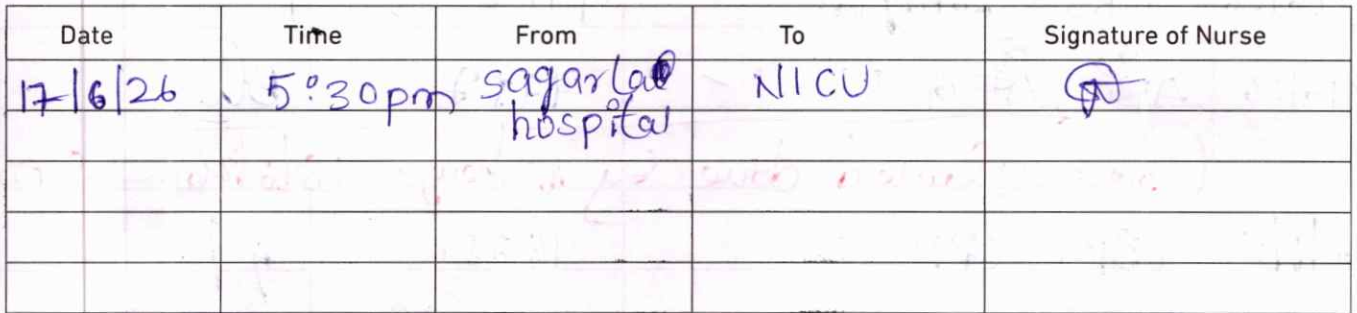 Date Time From To Signature of Nurse
17/6/26 5:30pm sagarlal NICU
hospital